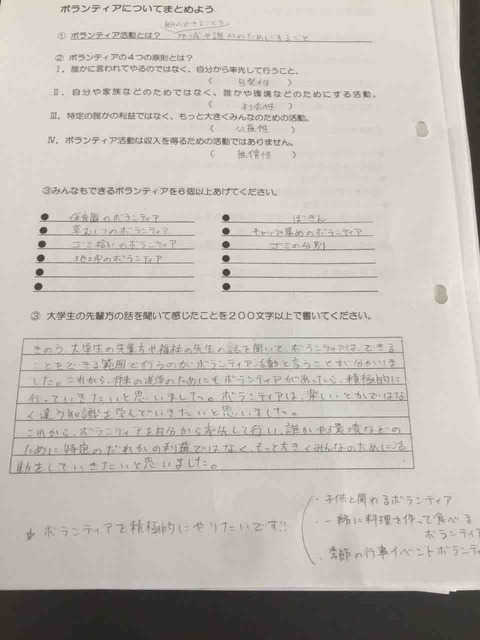 ボランティアについてまとめよう
自分のできることを
① ボランティア活動とは? 地域や誰かのためにすること
② ボランティアの4つの原則とは?
Ⅰ．誰かに言われてやるのではなく、自分から率先して行うこと。
( 自発性 )
Ⅱ．自分や家族などのためではなく、誰かや環境などのためにする活動。
( 社会性 )
Ⅲ．特定の誰かの利益ではなく、もっと大きくみんなのための活動。
( 公益性 )
Ⅳ．ボランティア活動は収入を得るための活動ではありません。
( 無償性 )
③みんなもできるボランティアを6個以上あげてください。
● 保育園のボランティア ● ぼきん
● 草むしりのボランティア ● キャップ集めのボランティア
● ゴミ拾いのボランティア ● ゴミの分別
● 地域のボランティア ●
● ●
● ●
③ 大学生の先輩方の話を聞いて感じたことを200文字以上で書いてください。
きのう、大学生の先輩方や福祉の先生の話を聞いて、ボランティアは、できる
ことをできる範囲で行うのがボランティア活動と言うことが分かりま
した。これから、将来の進路のためにもボランティアがあったら、積極的に
行っていきたいと思いました。ボランティアは、楽しいとかではな
く違う知識も学んでいきたいと思いました。
これから、ボランティアを自分から率先して行い、誰かや環境などの
ために特定のだれかの利益ではなく、もっと大きくみんなのために活
動をしていきたいと思いました。
★ ボランティアを積極的にやりたいです!!
・子供と関わるボランティア
・一緒に料理を作って食べる
ボランティア
・季節の行事イベントボランティ